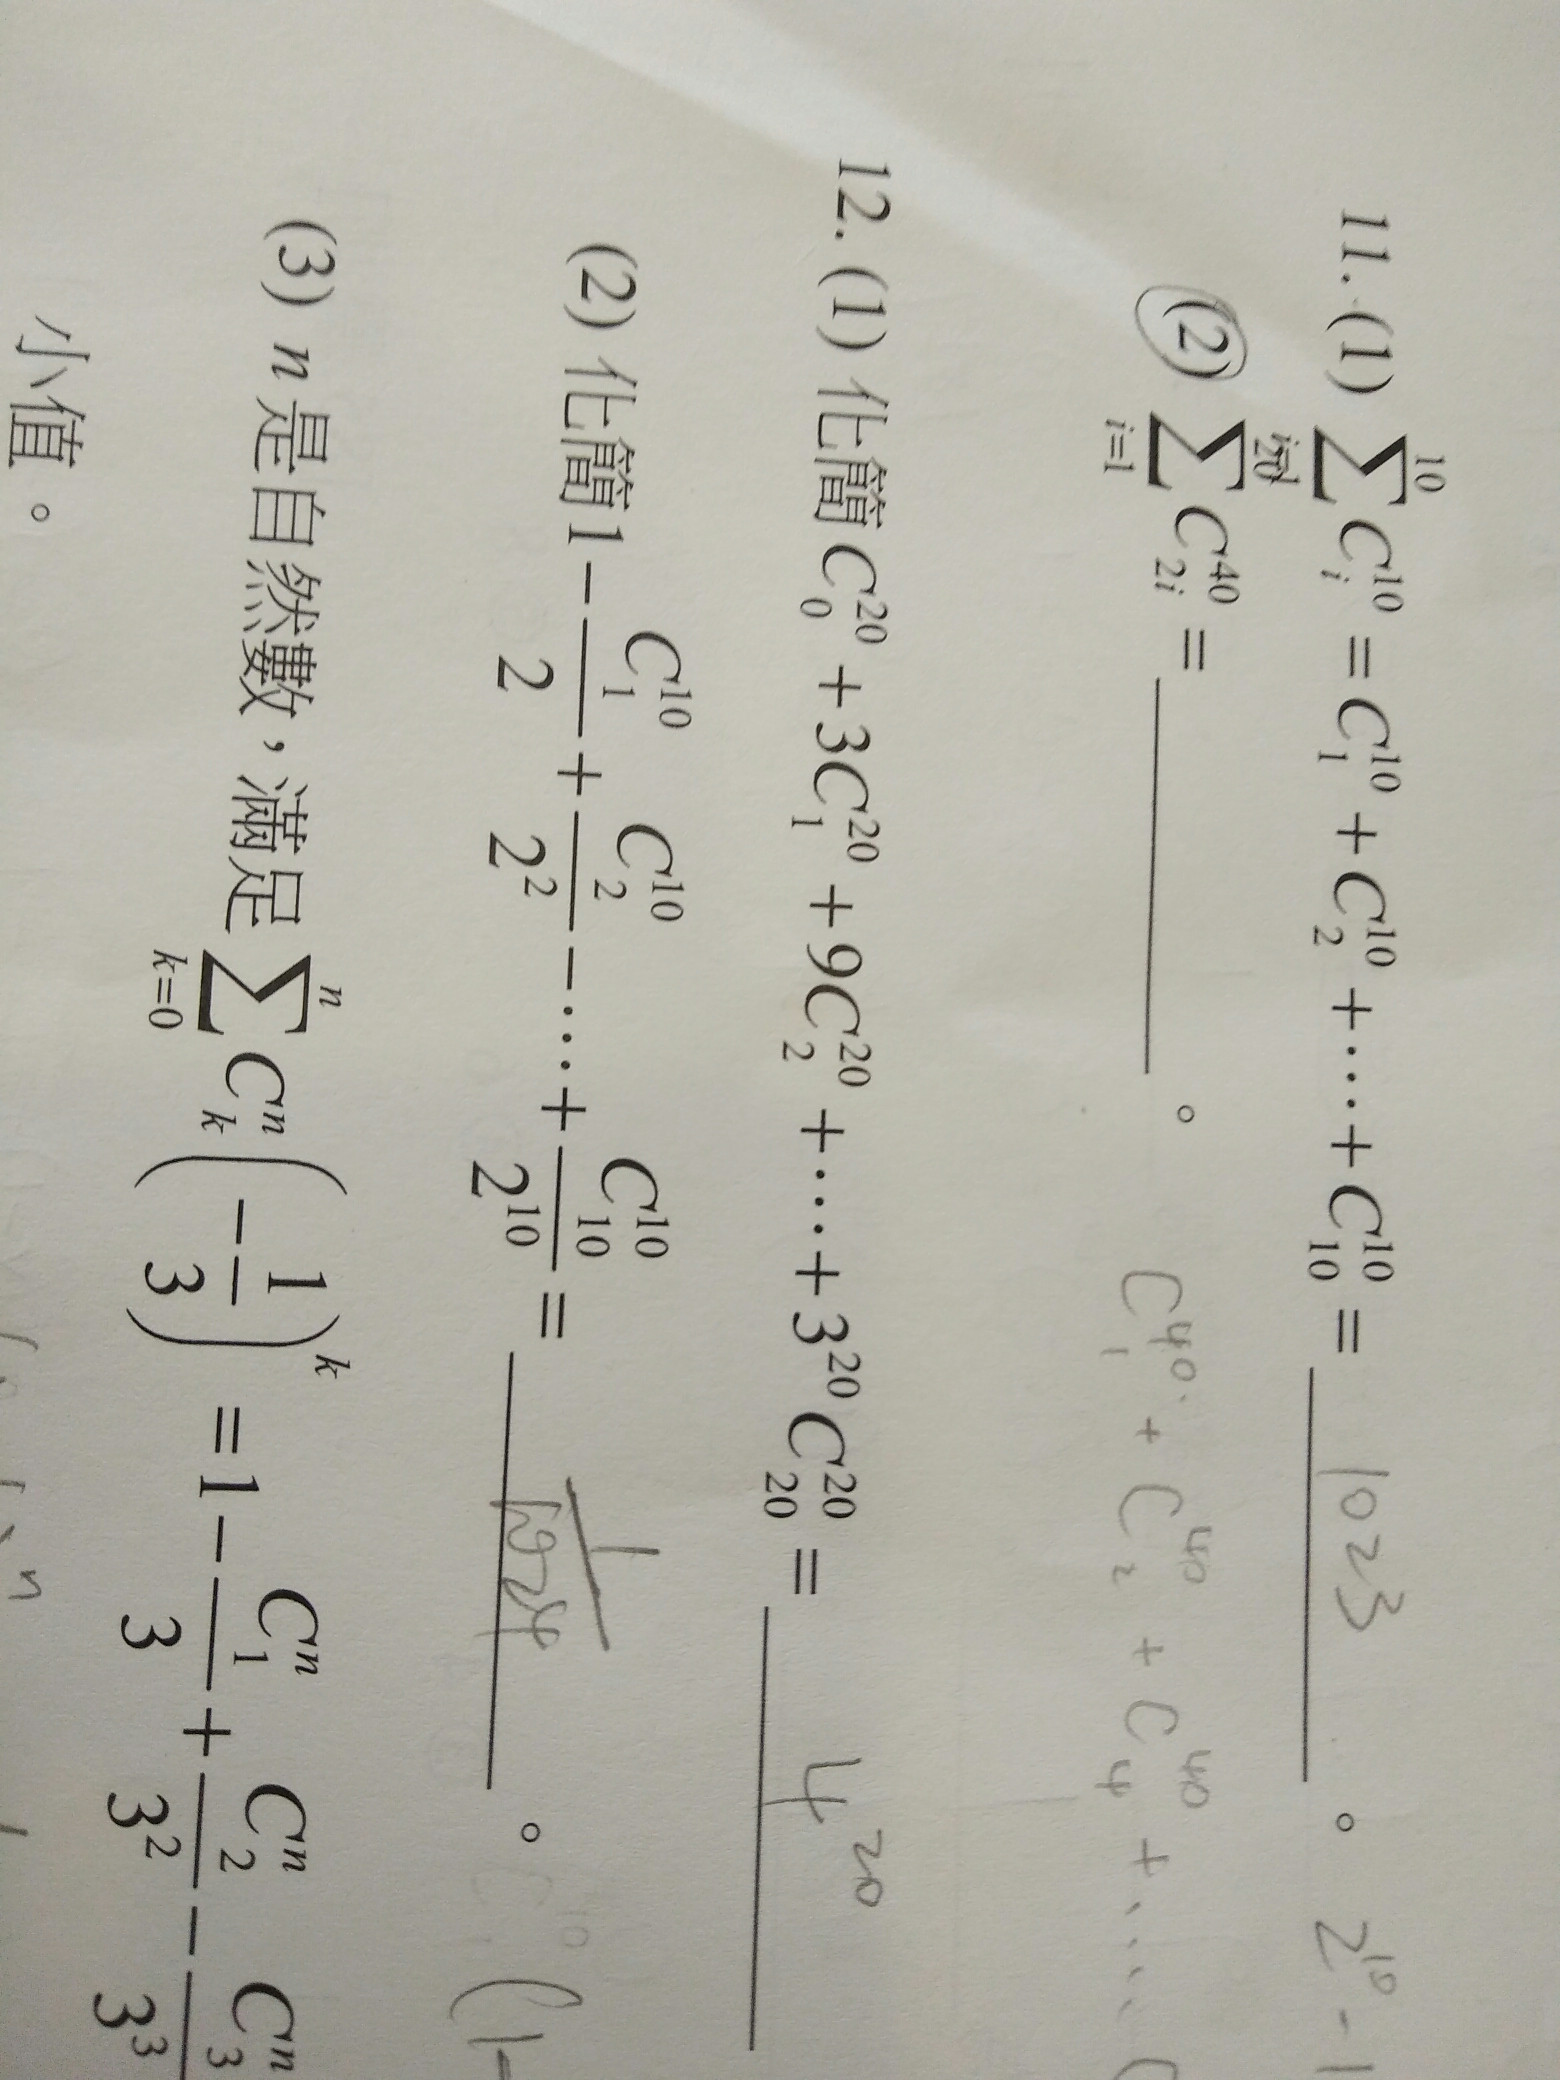 11. (1) \sum_{i=1}^{10} C_{i}^{10} = C_{1}^{10} + C_{2}^{10} + \cdots + C_{10}^{10} = 1023 。 2^{10} - 1
(2) \sum_{i=1}^{20} C_{2i}^{40} = 。 C_{1}^{40} + C_{2}^{40} + C_{4}^{40} + \cdots
12. (1) 化簡 C_{0}^{20} + 3C_{1}^{20} + 9C_{2}^{20} + \cdots + 3^{20}C_{20}^{20} = 4^{20}
(2) 化簡 1 - \frac{C_{1}^{10}}{2} + \frac{C_{2}^{10}}{2^{2}} - \cdots + \frac{C_{10}^{10}}{2^{10}} = \frac{1}{1024} 。 (1-
(3) n 是自然數，滿足 \sum_{k=0}^{n} C_{k}^{n} \left( -\frac{1}{3} \right)^{k} = 1 - \frac{C_{1}^{n}}{3} + \frac{C_{2}^{n}}{3^{2}} - \frac{C_{3}^{n}}{3^{3}}
小值。